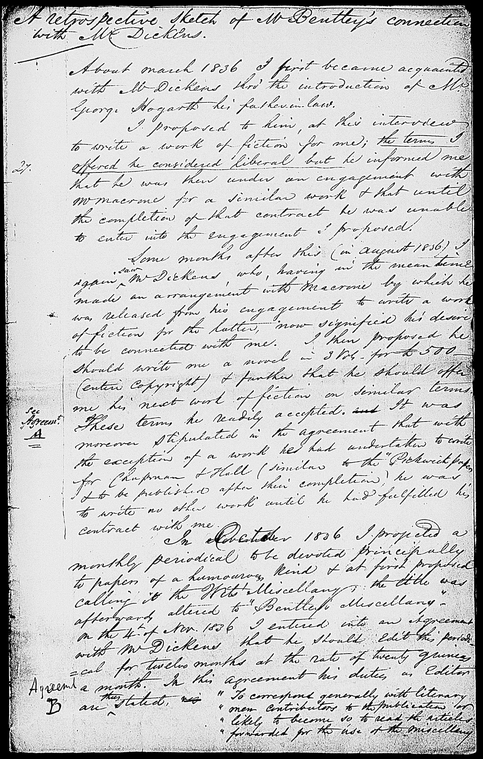 A retrospective sketch of Mr Bentley's connection
with Mr Dickens.
About march 1836 I first became acquainted
with Mr Dickens thro' the introduction of Mr
George Hogarth his father in law.
I proposed to him, at this interview
to write a work of fiction for me; the terms I
27.
offered he considered liberal but he informed me
that he was then under an engagement with
Mr macrone for a similar work & that until
the completion of that contract he was unable
to enter into the engagement I proposed.
Some months after this (in august 1836) I
again saw Mr Dickens, who, having in the mean time
made an arrangement with Macrone by which he
was released from his engagement to write a work
of fiction for the latter, now signified his desire
to be connected with me. I then proposed he
should write me a novel in 3 Vols. for £500
(entire Copyright) & further that he should offer
me his next work of fiction on similar terms
see
Agreemt.
A
These terms he readily accepted. It was
moreover stipulated in the agreement that with
the exception of a work he had undertaken to write
for Chapman & Hall (similar to the "Pickwick Papers
& to be published after their completion) he was
to write no other work until he had fulfilled his
contract with me
In October 1836 I projected a
monthly periodical to be devoted principally
to papers of a humourous kind & at first proposed
calling it the Wits Miscellany; the title was
afterwards altered to "Bentley's Miscellany"
on the 4th of Nov. 1836 I entered into an Agreement
with Mr Dickens that he should Edit the period=
=cal for twelve months at the rate of twenty guineas
a month. In this agreement his duties as Editor
Agreemt
B
are thus stated.
"To correspond generally with literary
"men contributors to the publication or
"likely to become so to read the articles
"forwarded for the use of the miscellany